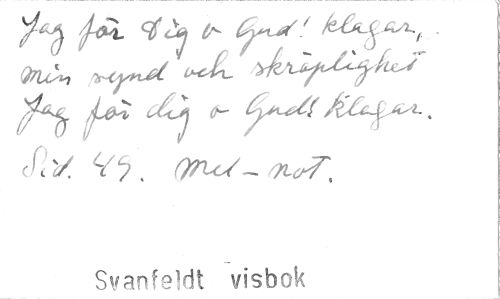 Jag för Dig o Gud! klagar,
min synd och skröplighet
Jag för dig o Gud! klagar.
Sid. 49. Mel-not.
Svanfeldt visbok